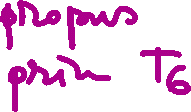 propus
prin T6